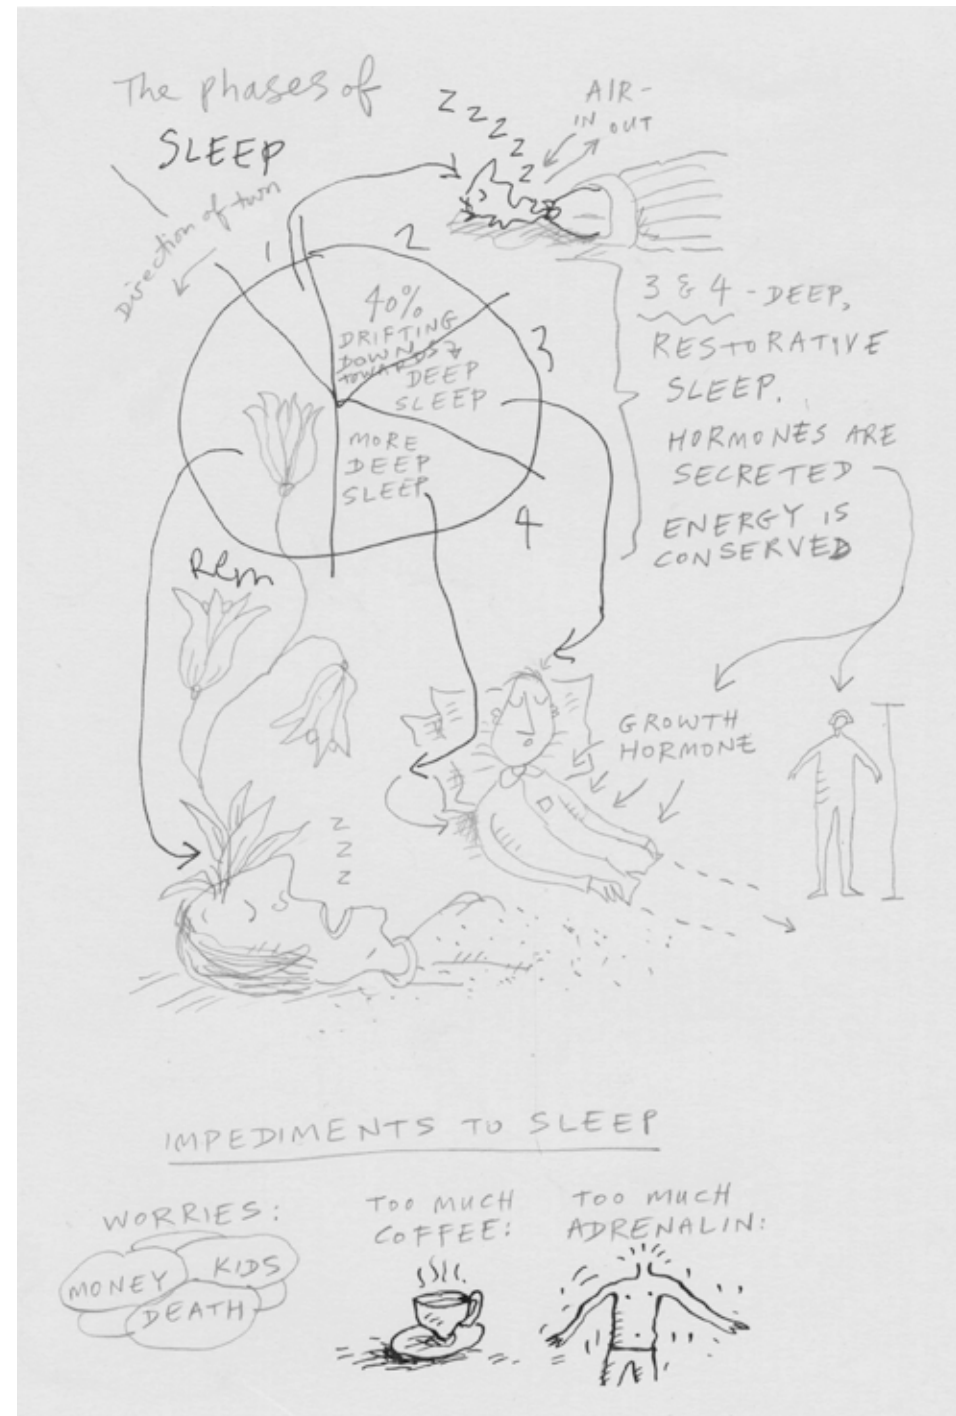 The phases of
SLEEP
Direction of turn
Z Z Z Z Z
AIR-
IN OUT
1
2
3
4
40%
DRIFTING
DOWN
TOWARDS
DEEP
SLEEP
MORE
DEEP
SLEEP
Rem
3 & 4 - DEEP,
RESTORATIVE
SLEEP.
HORMONES ARE
SECRETED
ENERGY IS
CONSERVED
GROWTH
HORMONE
Z
Z
Z
IMPEDIMENTS TO SLEEP
WORRIES:
MONEY
KIDS
DEATH
TOO MUCH
COFFEE:
TOO MUCH
ADRENALIN: